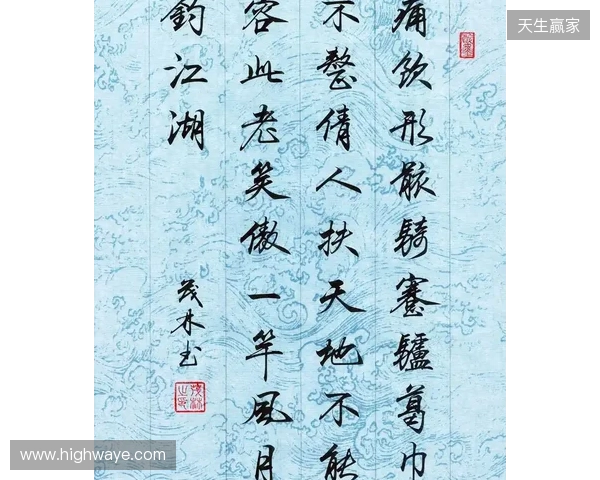 天生赢家
痛饮形骸騎蹇驢葛巾
不整倩人扶天地不能
容此老笑傲一竿風月
釣江湖
茂林书
www.highwaye.com